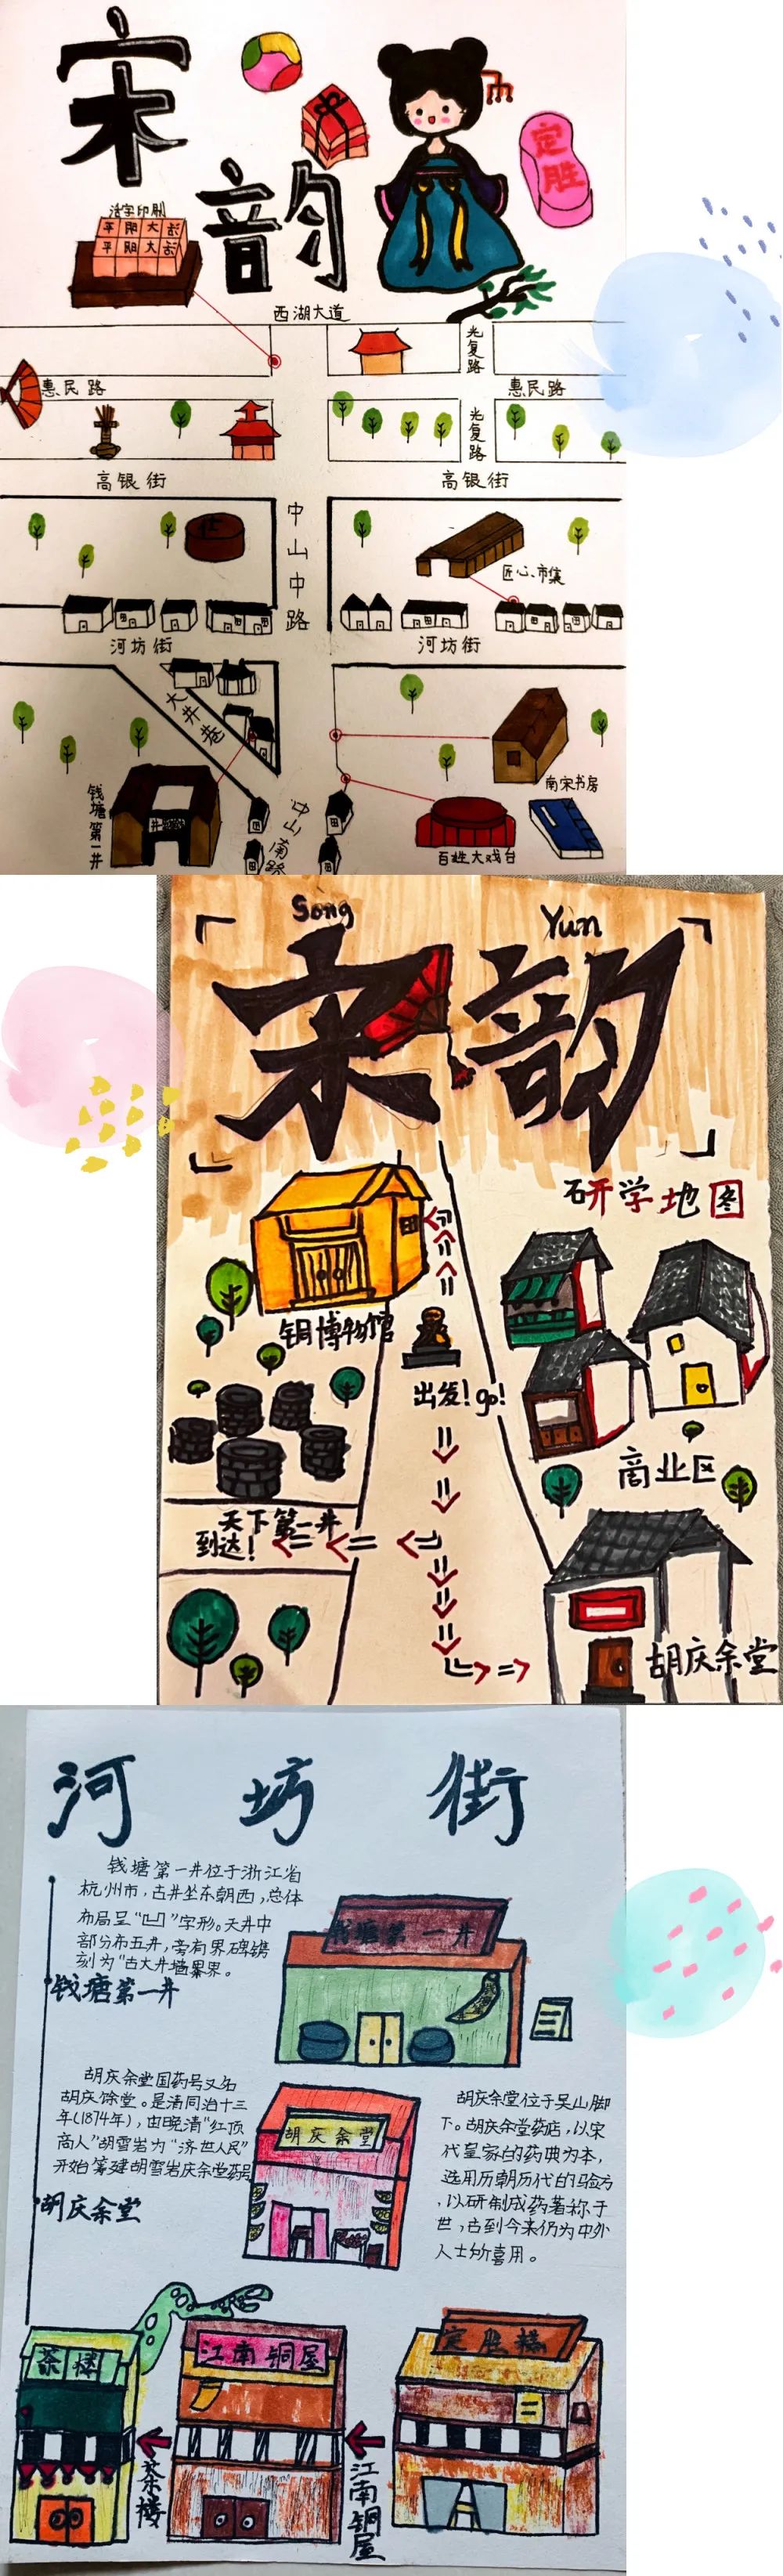 宋
韵
定
胜
活字印刷
活大明平
活大明平
西湖大道
光复路
惠民路
惠民路
光复路
高银街
高银街
中山中路
匠心市集
河坊街
河坊街
大井巷
钱塘第一井
南宋书房
中山南路
百姓大戏台
Song Yun
宋韵
研学地图
铜博物馆
出发! go!
商业区
天下第一井
到达!
胡庆余堂
河坊街
钱塘第一井位于浙江省
杭州市,古井坐东朝西,总体
布局呈“凹”字形。天井中
部分布五井,旁有界碑镌
刻为“古大井墙界。
钱塘第一井
钱塘第一井
胡庆余堂国药号又名
胡庆馀堂。是清同治十三
年(1874年),由晚清“红顶
商人”胡雪岩为“济世人民”
开始筹建胡雪岩庆余堂药号
胡庆余堂
胡庆余堂
胡庆余堂位于吴山脚
下。胡庆余堂药店,以宋
代皇家的药典为本,
选用历朝历代的验方
,以研制成药著称于
世,古到今来仍为中外
人士所喜用。
茶楼
江南铜屋
定胜糕
茶楼
江南铜屋